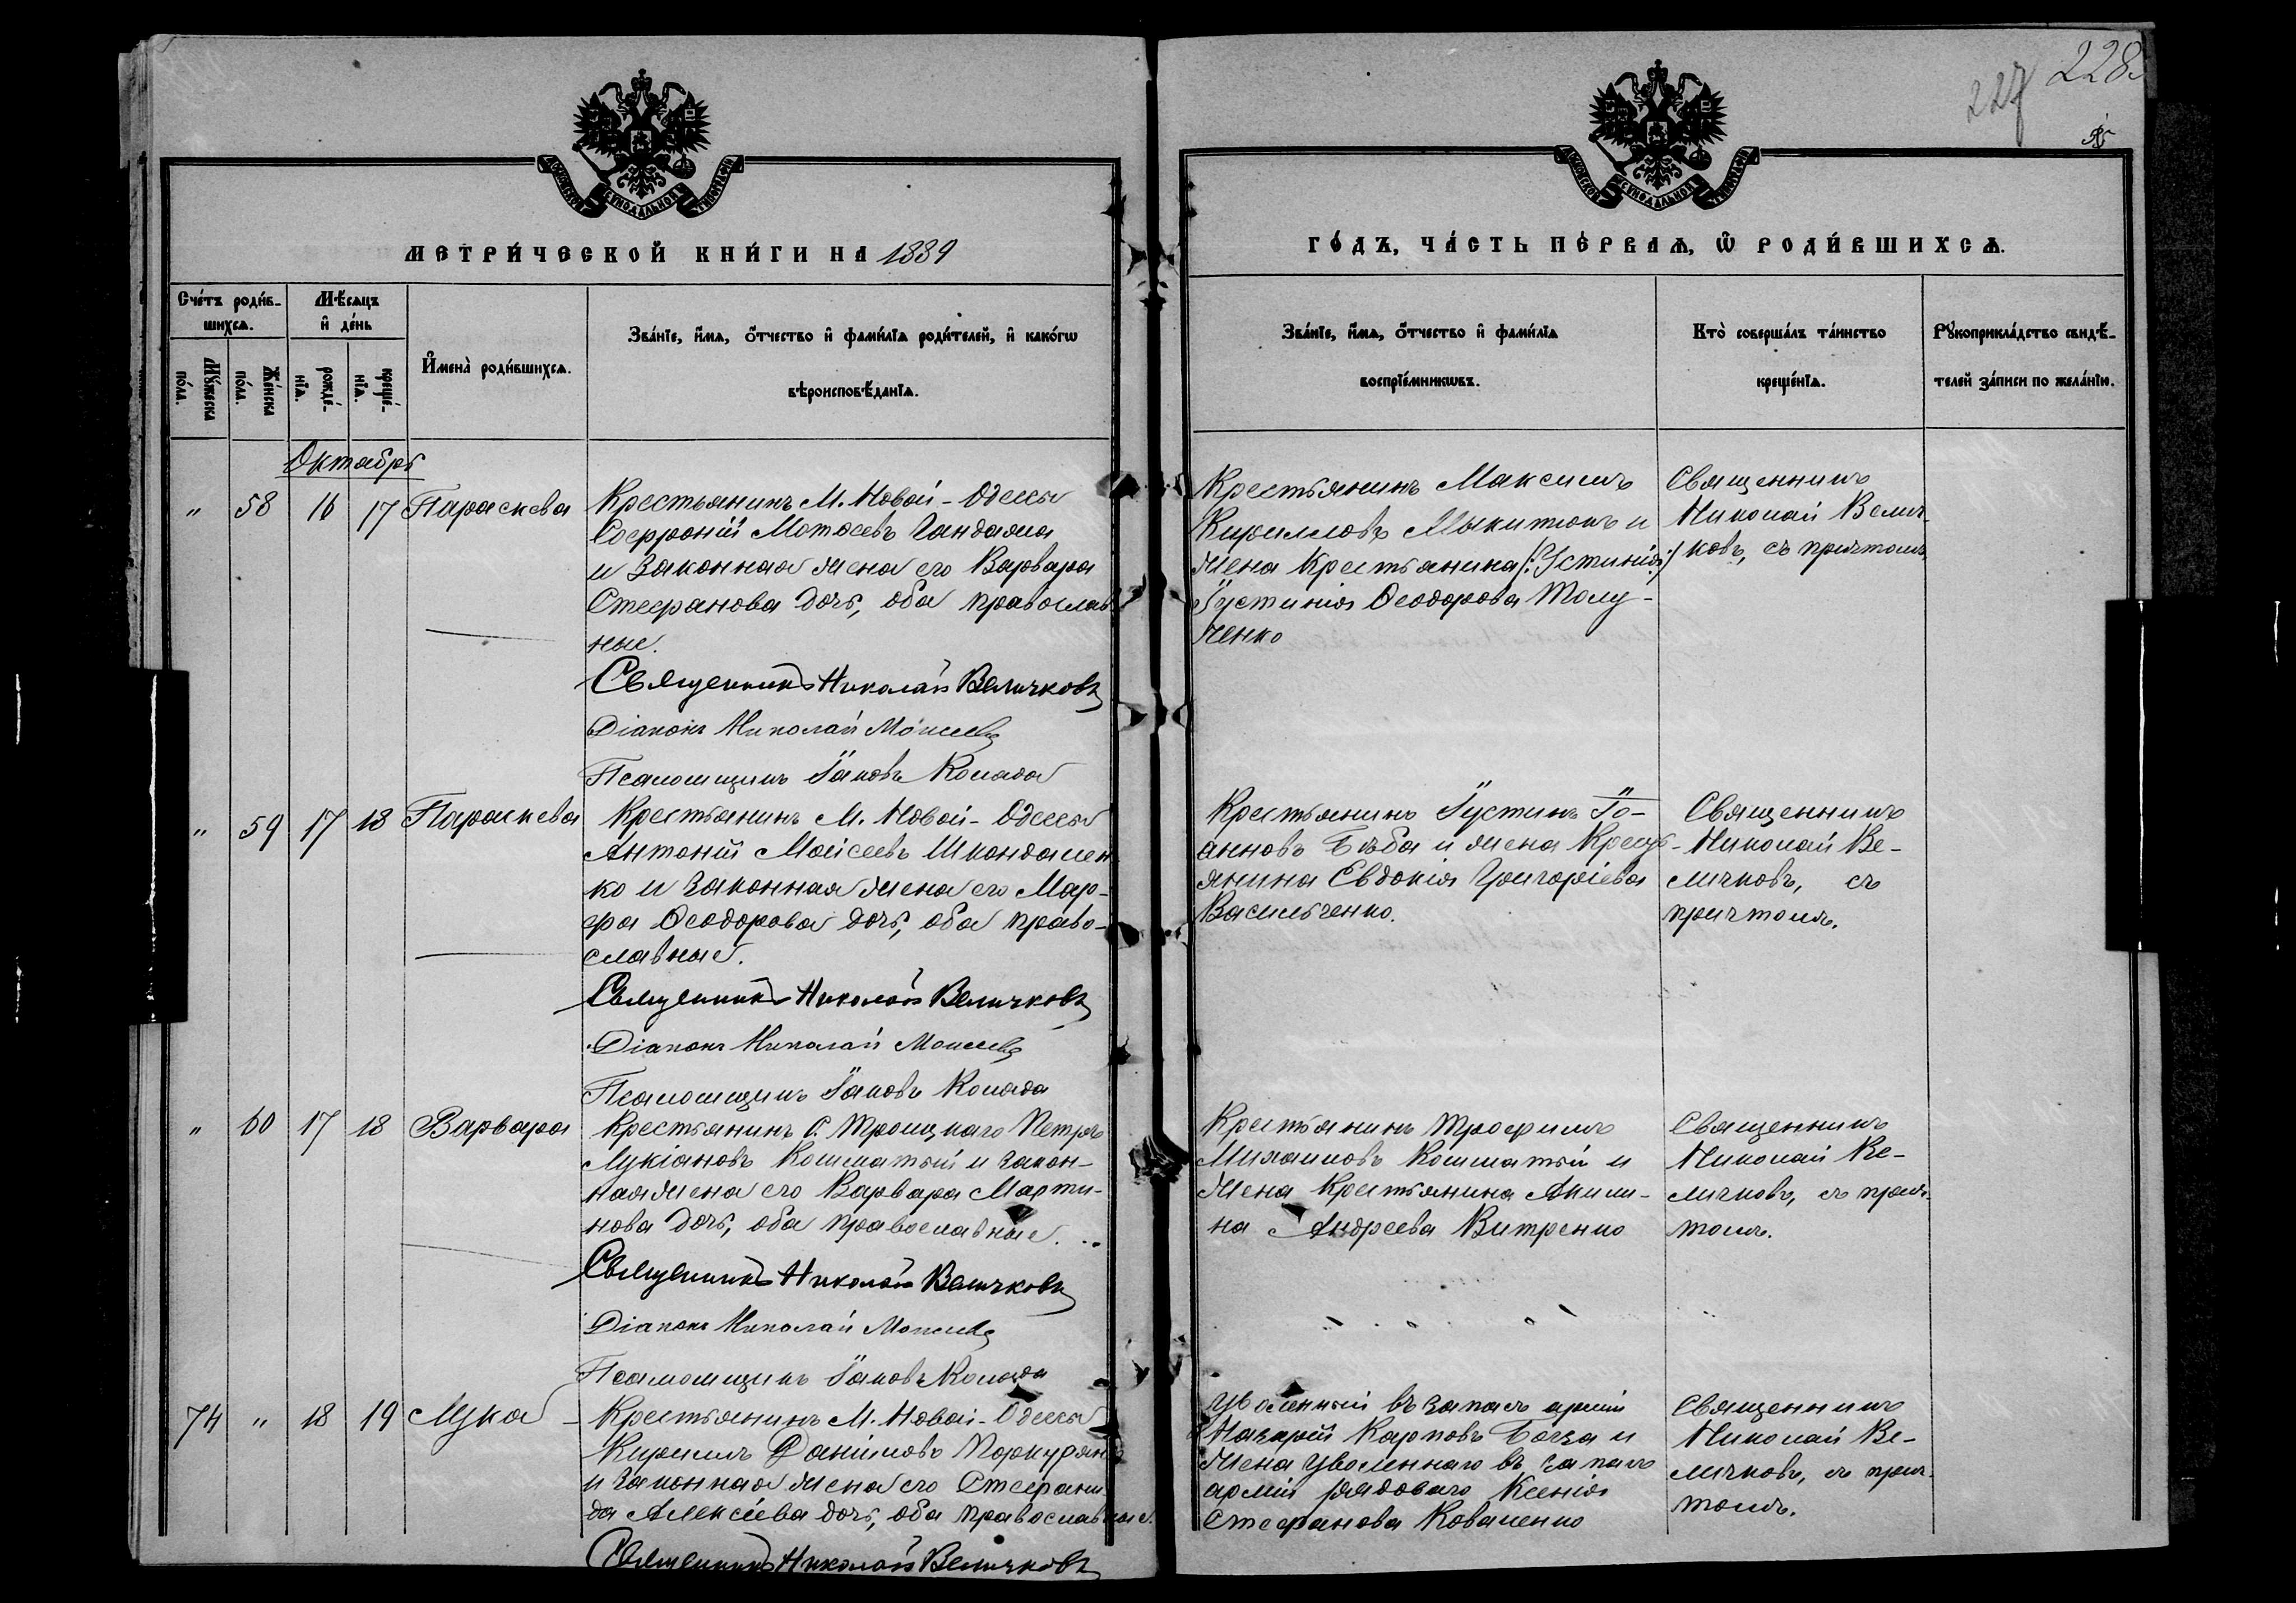 227 228
МОСКОВСКОЙ СѴНОДАЛЬНОЙ ТИПОГРАФІИ
МОСКОВСКОЙ СѴНОДАЛЬНОЙ ТИПОГРАФІИ
МЕТРИ́ЧЕСКОЙ КНИ́ГИ НА 1889
ГО́ДЪ, ЧА́СТЬ ПЕ́РВАѦ, Ѽ РОДИ́ВШИХСѦ.
Сче́тъ роди́в-
шихсѧ.
Мꙋ́жеска по́ла.
Же́нска по́ла.
Мѣ́сѧцъ
и҆ де́нь
рожде́-
нїѧ.
креще́-
нїѧ.
И҆мена̀ роди́вшихсѧ.
Зва́нїе, и҆́мѧ, ѻ҆́тчество и҆ фами́лїѧ роди́телей, и҆ како́гѡ
вѣроисповѣ́данїѧ.
Зва́нїе, и҆́мѧ, ѻ҆́тчество и҆ фами́лїѧ
воспрїе́мникѡвъ.
Кто̀ соверша́лъ та́инство
креще́нїѧ.
Рꙋкоприкла́дство свидѣ́-
телей за́писи по жела́нїю.
Октябрь
" 58 16 17 Параскева
Крестьянинъ М. Новой-Одессы
Софроній Мотосевъ Гандзюма
и законная жена его Варвара
Стефанова дочь, оба православ
ные.
Священникъ Николай Величковъ
Діаконъ Николай Моисеевъ
Псаломщикъ Іаковъ Коляда
Крестьянинъ Максимъ
Кирилловъ Мыкитюкъ и
жена крестьянина /:Устинія:/
Іустинія Ѳеодорова Толу-
ченко
Священникъ
Николай Велич-
ковъ, съ причтомъ
" 59 17 18 Параскева
Крестьянинъ М. Новой-Одессы
Антоній Моісеевъ Шкондамен
ко и законная жена его Мар-
фа Ѳеодорова дочь, оба право-
славные.
Священникъ Николай Величковъ
Діаконъ Николай Моисеевъ
Псаломщикъ Іаковъ Коляда
Крестьянинъ Іустинъ Іо-
анновъ Бѣба и жена Крест-
янина Евдокія Григоріева
Васильченко.
Священникъ
Николай Ве-
личковъ, съ
причтомъ.
" 60 17 18 Варвара
Крестьянинъ С. Троицкаго Петръ
Лукіановъ Кошматый и закон-
ная жена его Варвара Марти-
нова дочь, оба православные.
Священникъ Николай Величковъ
Діаконъ Николай Моисеевъ
Псаломщикъ Іаковъ Коляда
Крестьянинъ Трофимъ
Михаиловъ Кошматый и
жена Крестьянина Акили-
на Андреева Витренко
Священникъ
Николай Ве-
личковъ, съ прич-
томъ.
74 " 18 19 Лука
Крестьянинъ М. Новой-Одессы
Кириллъ Даніиловъ Поркурян
и законная жена его Стефани
да Алексіева дочь, оба православные.
Священникъ Николай Величковъ
Уволенный въ запасъ арміи
Назарій Карповъ Богза и
жена уволеннаго въ запасъ
арміи рядоваго Ксенія
Стефанова Коваленко
Священникъ
Николай Ве-
личковъ, съ прич-
томъ.